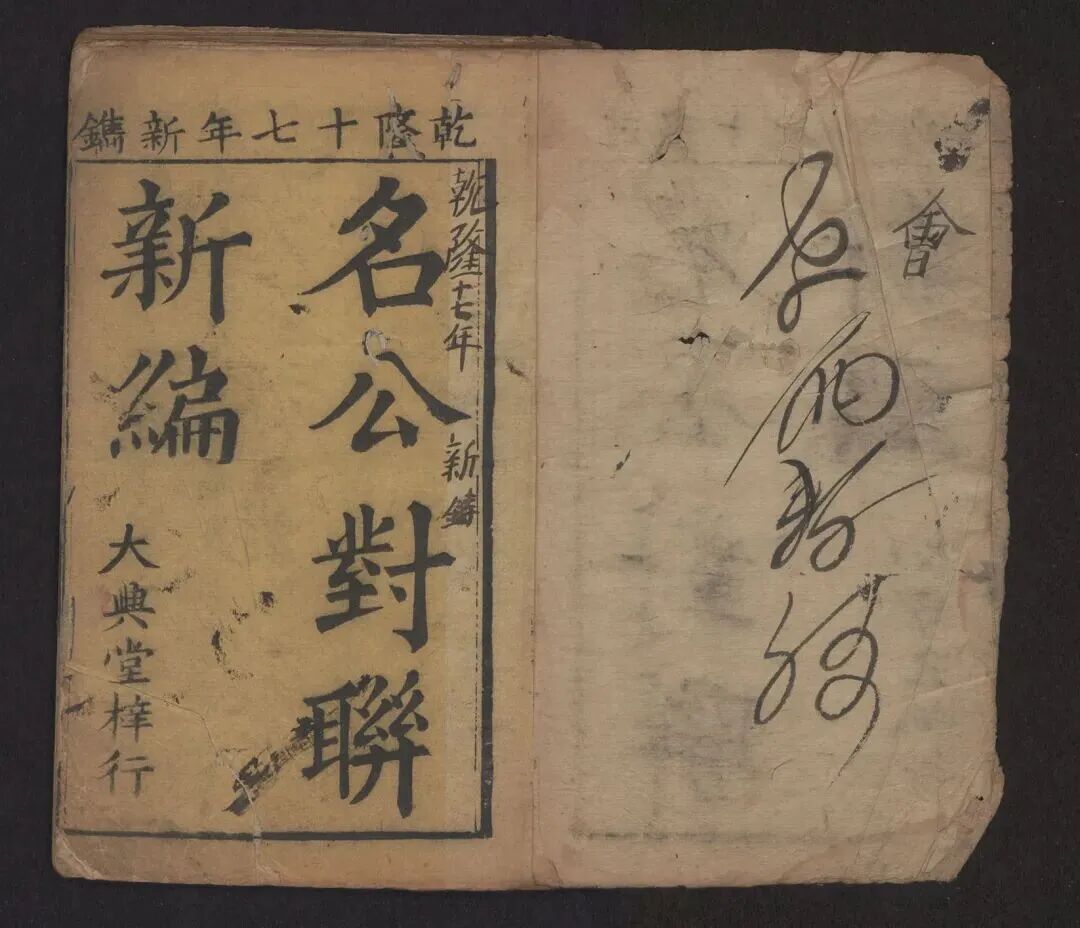 會
乾隆十七年新鐫
乾隆十七年 新鐫
名公對聯
新編
大典堂梓行